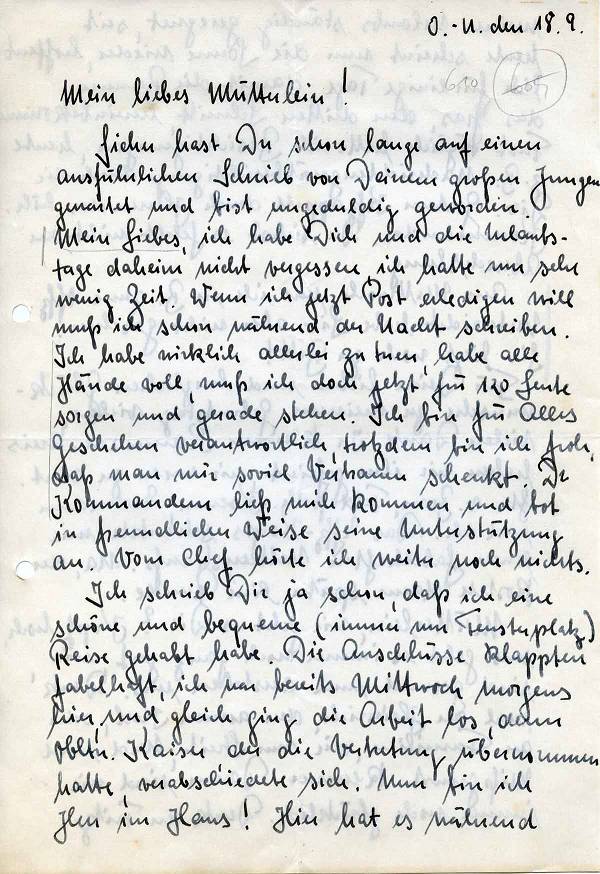 O.-U. den 18.9.
Mein liebes Mütterlein!
Sicher hast Du schon lange auf einen
ausführlichen Schrieb von Deinem großen Jungen
gewartet und bist ungeduldig geworden.
Mein Liebes, ich habe Dich und die Urlaubs-
tage daheim nicht vergessen, ich hatte nur sehr
wenig Zeit. Wenn ich jetzt Post erledigen will
muß ich schon während der Nacht schreiben.
Ich habe wirklich allerlei zu tuen, habe alle
Hände voll, muß ich doch jetzt für 120 Leute
sorgen und gerade stehen. Ich bin für Alles
Geschehen verantwortlich, trotzdem bin ich froh,
daß man mir soviel Vertrauen schenkt. Der
Kommandeur ließ mich kommen und bot
in freundlicher Weise seine Unterstützung
an. Vom Chef hörte ich weiter noch nichts.
Ich schrieb Dir ja schon, daß ich eine
schöne und bequeme (immer nur Fensterplatz)
Reise gehabt habe. Die Anschlüsse klappten
fabelhaft, ich war bereits Mittwoch morgens
hier, und gleich ging die Arbeit los, denn
Obltn. Kaiser der die Vertretung übernommen
hatte, verabschiedete sich. Nun bin ich
Herr im Haus! Hier hat es während